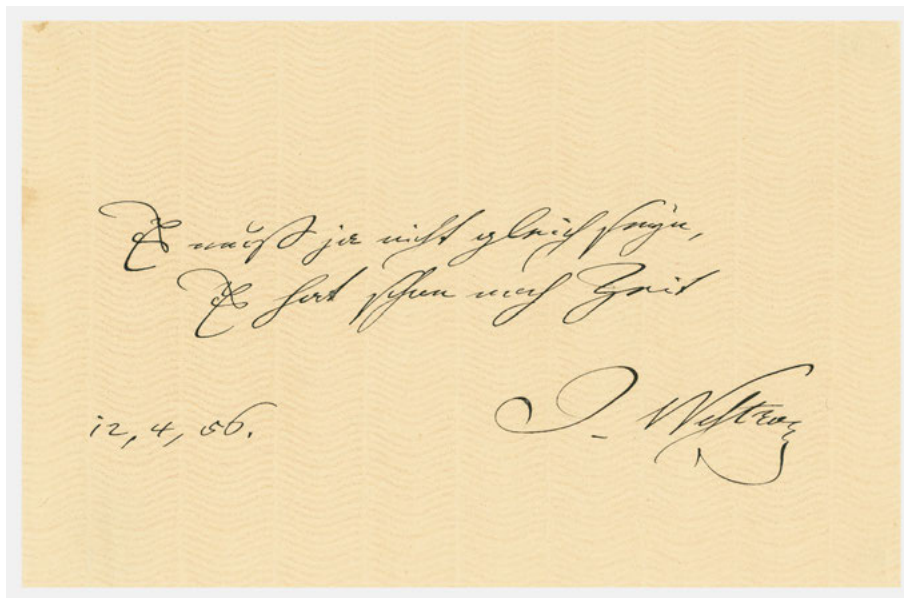 Es muß ja nicht gleich seyn,
Es hat schon noch Zeit
12, 4, 56.